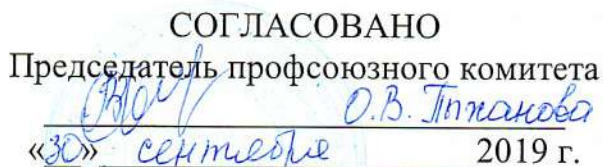 СОГЛАСОВАНО
Председатель профсоюзного комитета
О.В. Пыжанова
«30» сентября 2019 г.